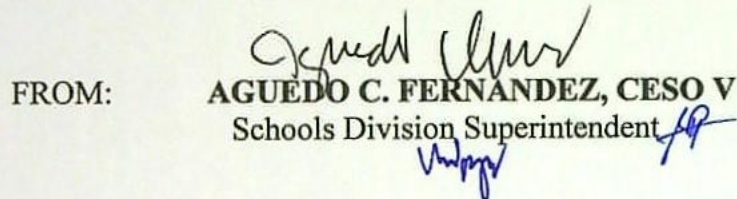 FROM: AGUEDO C. FERNANDEZ, CESO V
Schools Division Superintendent